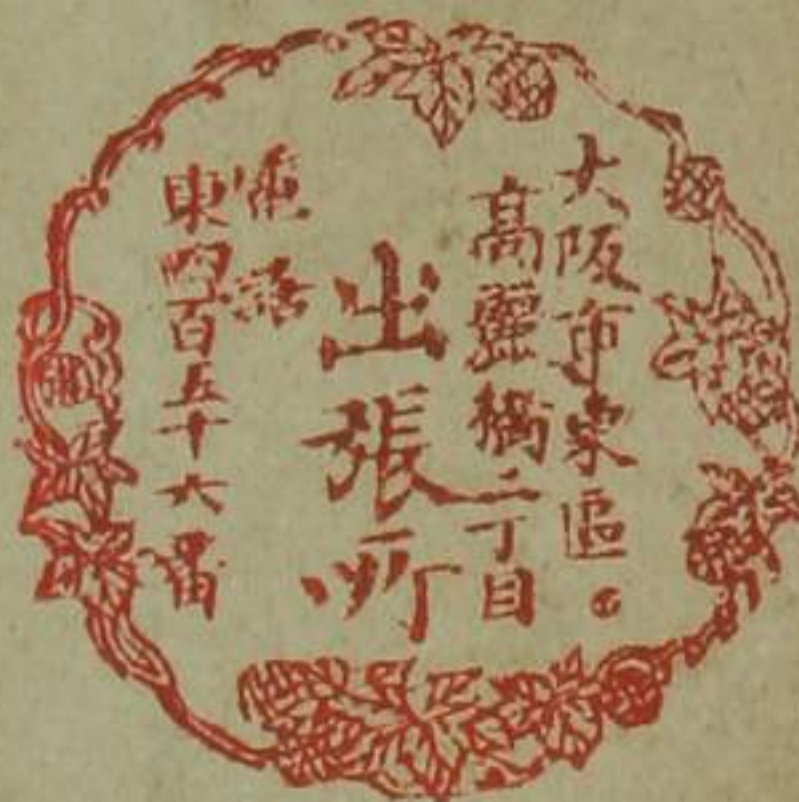 大阪市東區
高麗橋二丁目
出張所
電話
東四百五十六番